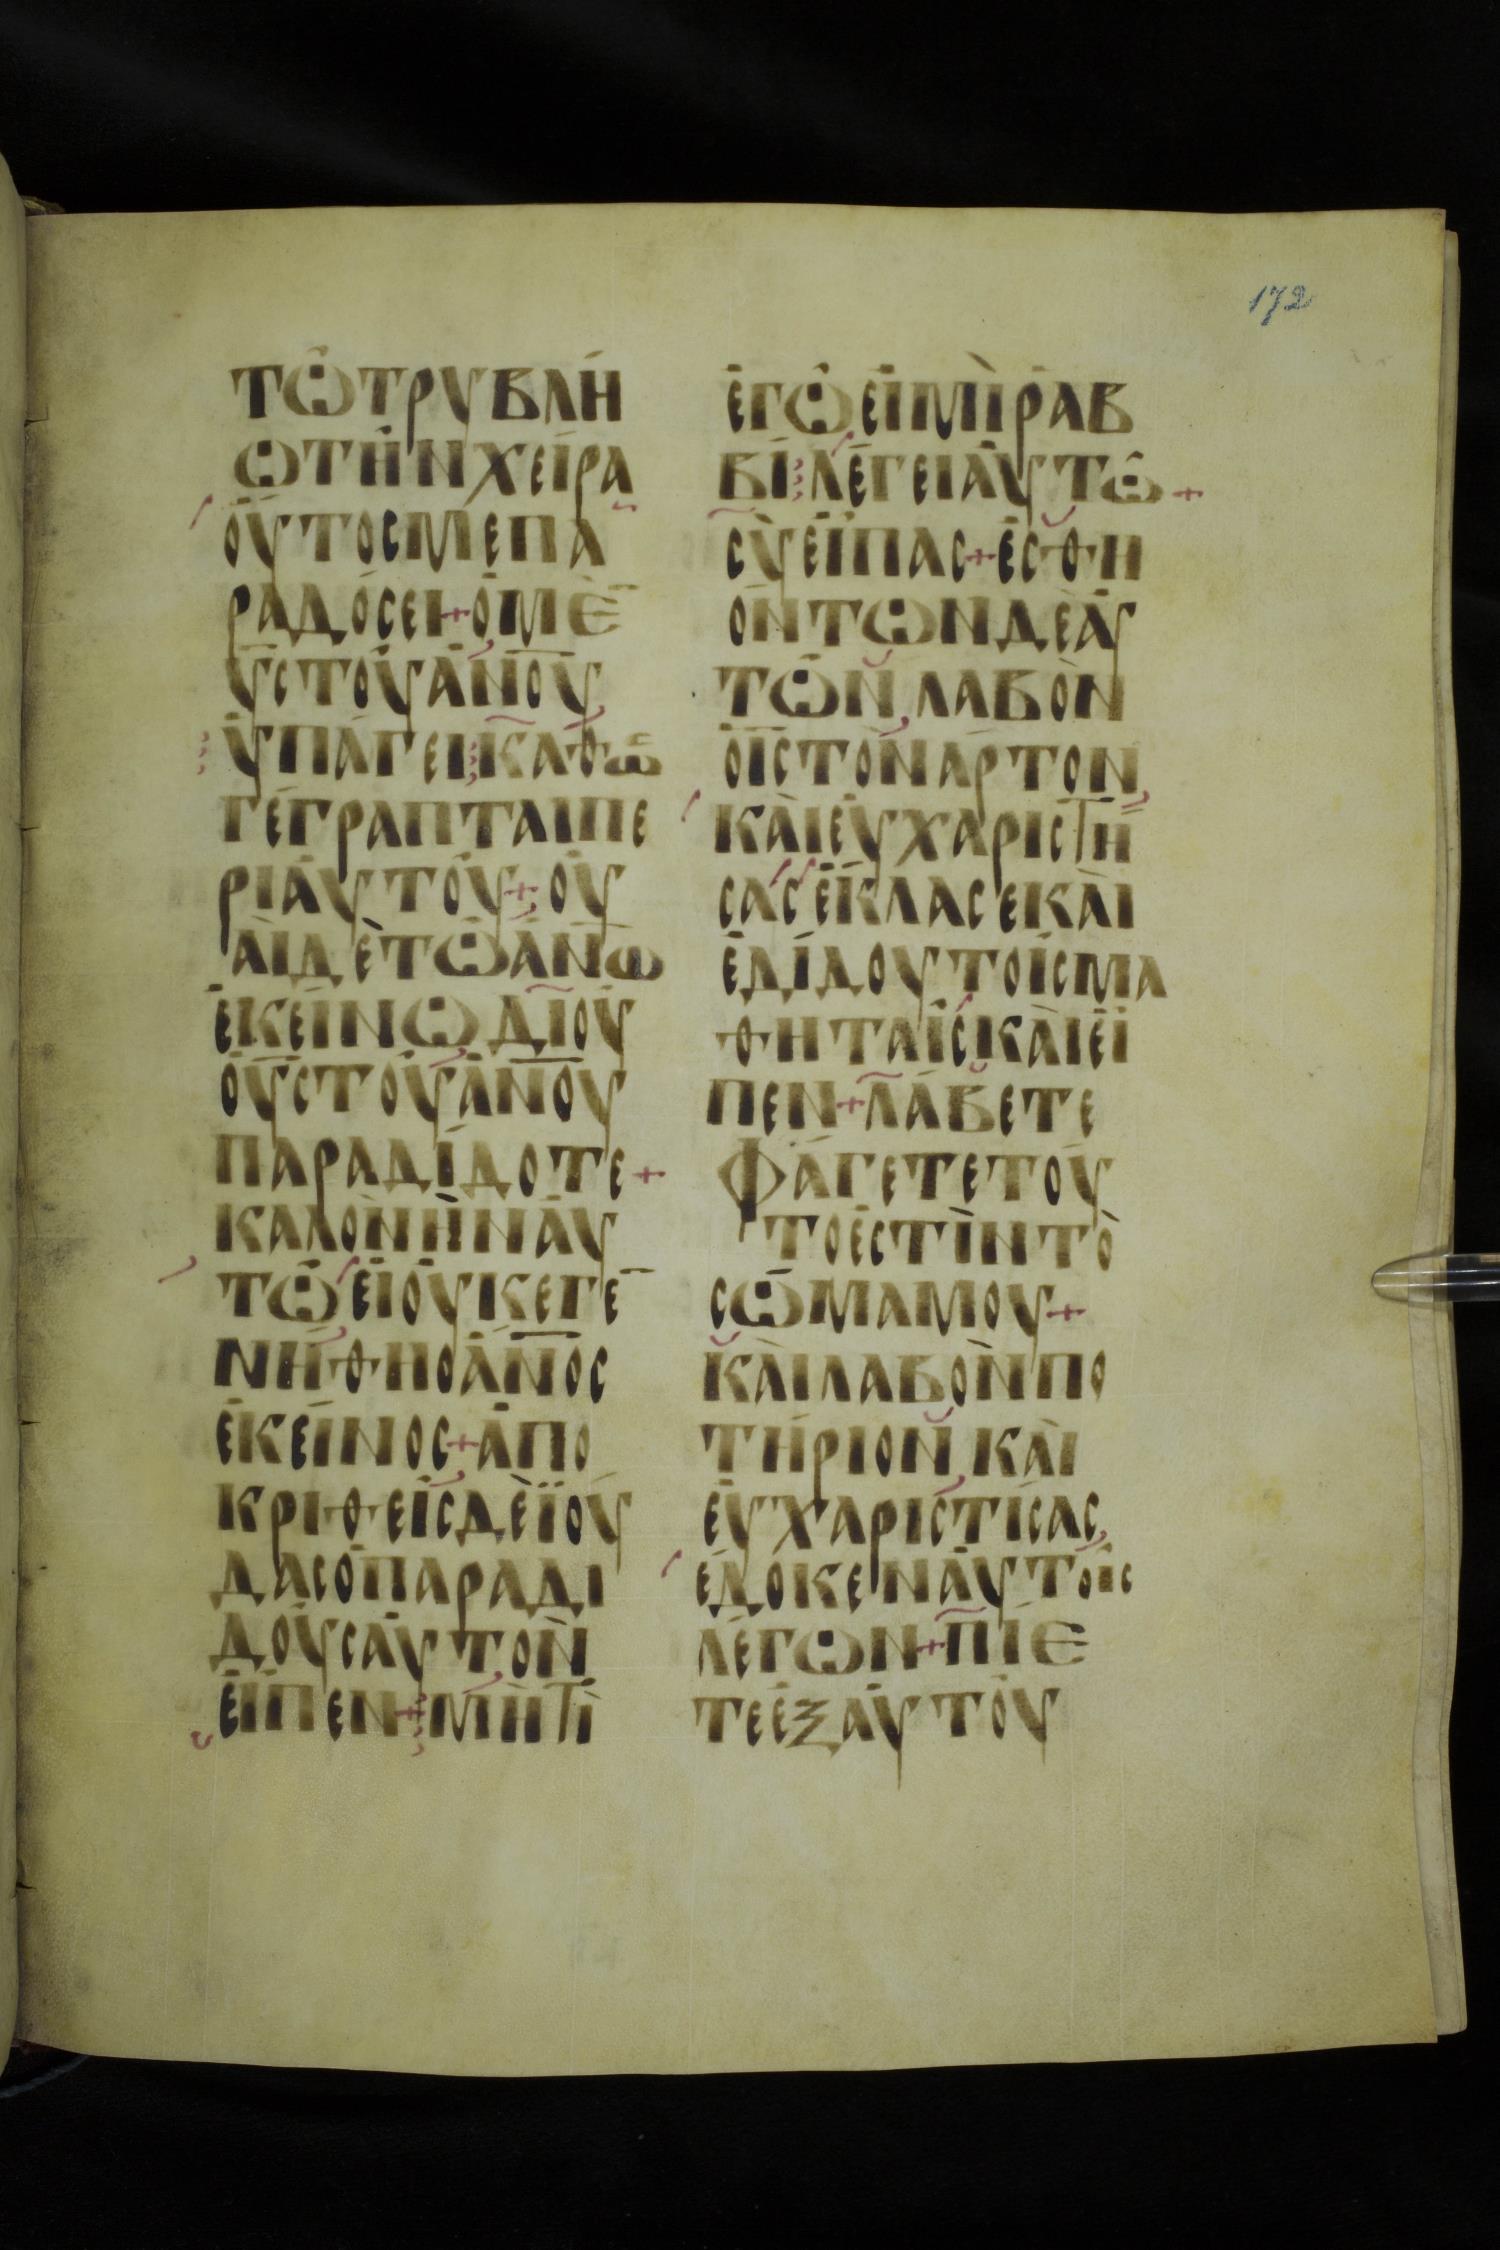 172
τῶ τρυβλή
ω τὴν χεῖρα
οὗτος με πα
ραδόσει + ὁ μὲ
ὑ̅ς̅ τοῦ ἀ̅ν̅ο̅υ̅
ὑπάγει καθὼ
γέγραπται πε
ρὶ αὐτοῦ + οὐ
αὶ δὲ τῶ ἀ̅ν̅ω̅
ἐκείνω δι οὗ
ὁ ὑ̅ς̅ τοῦ ἀ̅ν̅ο̅υ̅
παραδίδοτε +
καλὸν ἦν αὐ
τῶ εἰ οὐκ ἐγε
νήθη ὁ ἀ̅ν̅ο̅ς̅
ἐκεῖνος + ἀπο
κριθεὶς δὲ ϊού
δας ὁ παραδι
δοὺς αὐτὸν
εἶπεν + μήτι
ἐγῶ εἰμὶ ραβ
βί λέγει αὐτῶ +
σὺ εἶπας + ἐσθη
όντων δὲ αὐ
τῶν λαβὸν
ὁ ι̅ς̅ τὸν ἄρτον
καὶ εὐχαριστή
σας ἔκλασε καὶ
ἐδίδου τοῖς μα
θηταῖς καὶ εἶ
πεν + λάβετε
φάγετε τοῦ
το ἐστὶν τὸ
σῶμα μου +
καὶ λαβὸν πο
τήριον καὶ
εὐχαριστίσας
ἔδοκεν αὐτοῖς
λέγων + πίε
τε ἐξ αὐτοῦ